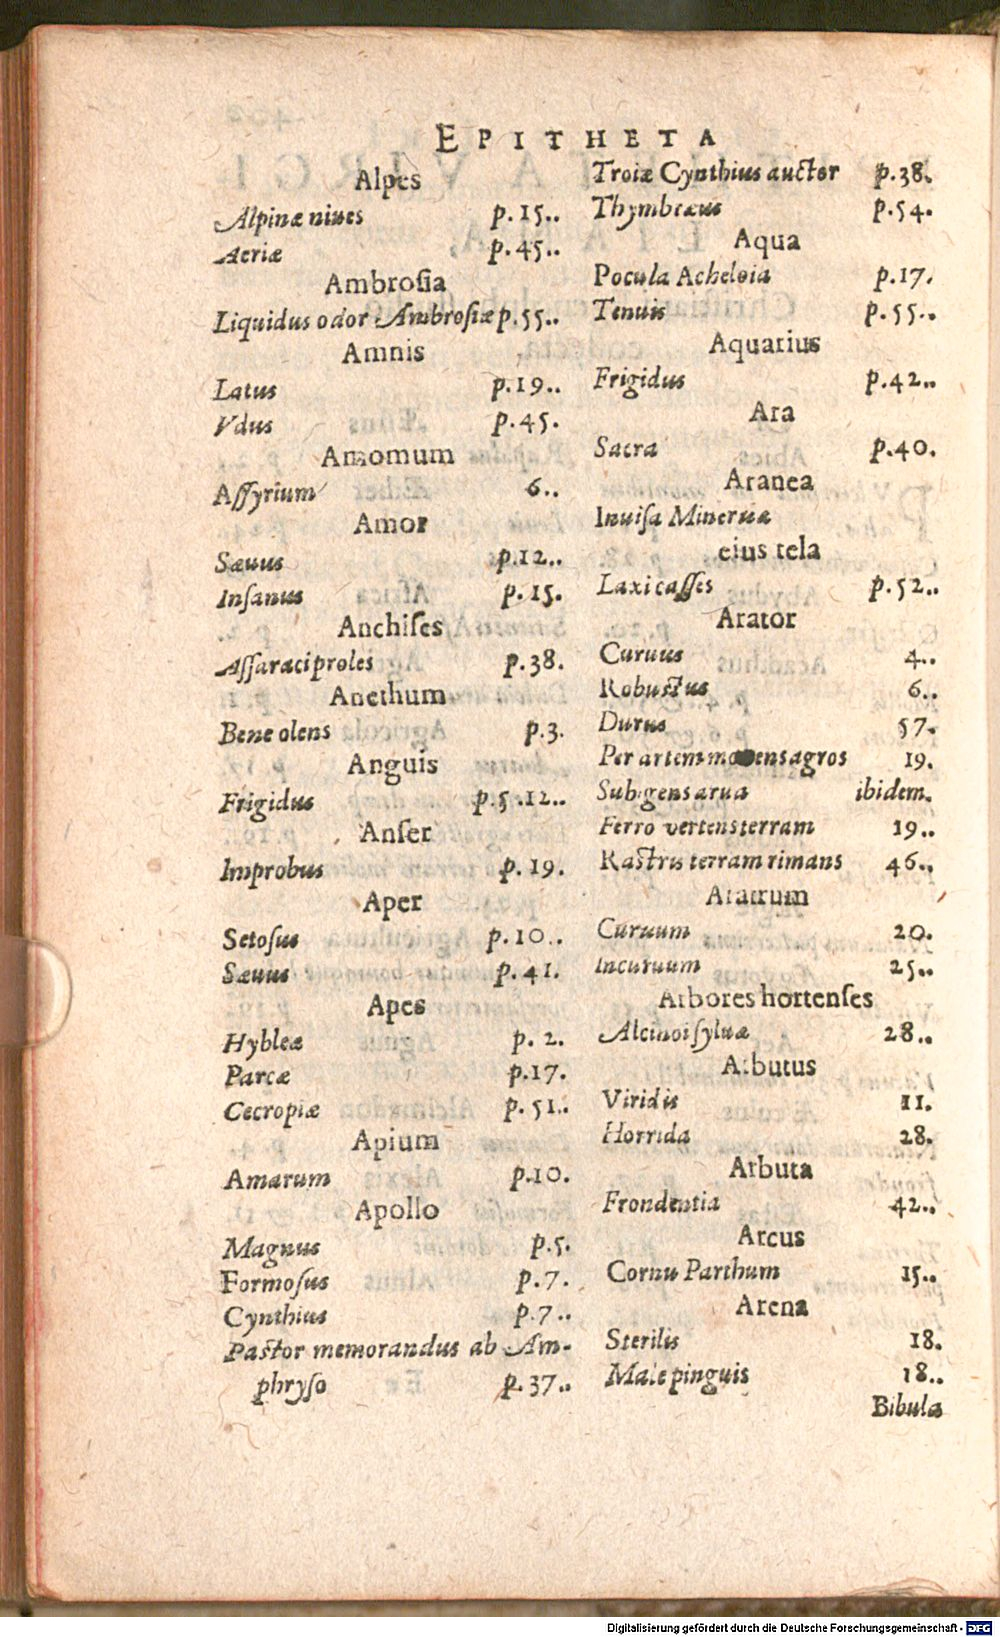 EPITHETA
Alpes
Alpinæ niues p. 15..
Aeriæ p. 45..
Ambrosia
Liquidus odor Ambrosiæ p. 55..
Amnis
Latus p. 19..
Vdus p. 45.
Amomum
Aſſyrium 6..
Amor
Sæuus p. 12..
Inſanus p. 15.
Anchiſes
Aſſaraci proles p. 38.
Anethum
Bene olens p. 3.
Anguis
Frigidus p. 5.12..
Anſer
Improbus p. 19.
Aper
Setoſus p. 10..
Sæuus p. 41.
Apes
Hybleæ p. 2.
Parcæ p. 17.
Cecropiæ p. 51..
Apium
Amarum p. 10.
Apollo
Magnus p. 5.
Formoſus p. 7.
Cynthius p. 7..
Pastor memorandus ab Am-
phryſo p. 37..
Troiæ Cynthius auctor p. 38.
Thymbræus p. 54.
Aqua
Pocula Acheloia p. 17.
Tenuis p. 55..
Aquarius
Frigidus p. 42..
Ara
Sacra p. 40.
Aranea
Inuiſa Mineruæ
eius tela
Laxi caſſes p. 52..
Arator
Curuus 4..
Robustus 6..
Durus 57.
Per artem mouens agros 19.
Subigens arua ibidem.
Ferro vertens terram 19..
Rastris terram rimans 46..
Aratrum
Curuum 20.
Incuruum 25..
Arbores hortenſes
Alcinoi ſyluæ 28..
Arbutus
Viridis 11.
Horrida 28.
Arbuta
Frondentia 42..
Arcus
Cornu Parthum 15..
Arena
Sterilis 18.
Male pinguis 18..
Bibula
Digitalisierung gefördert durch die Deutsche Forschungsgemeinschaft - DFG